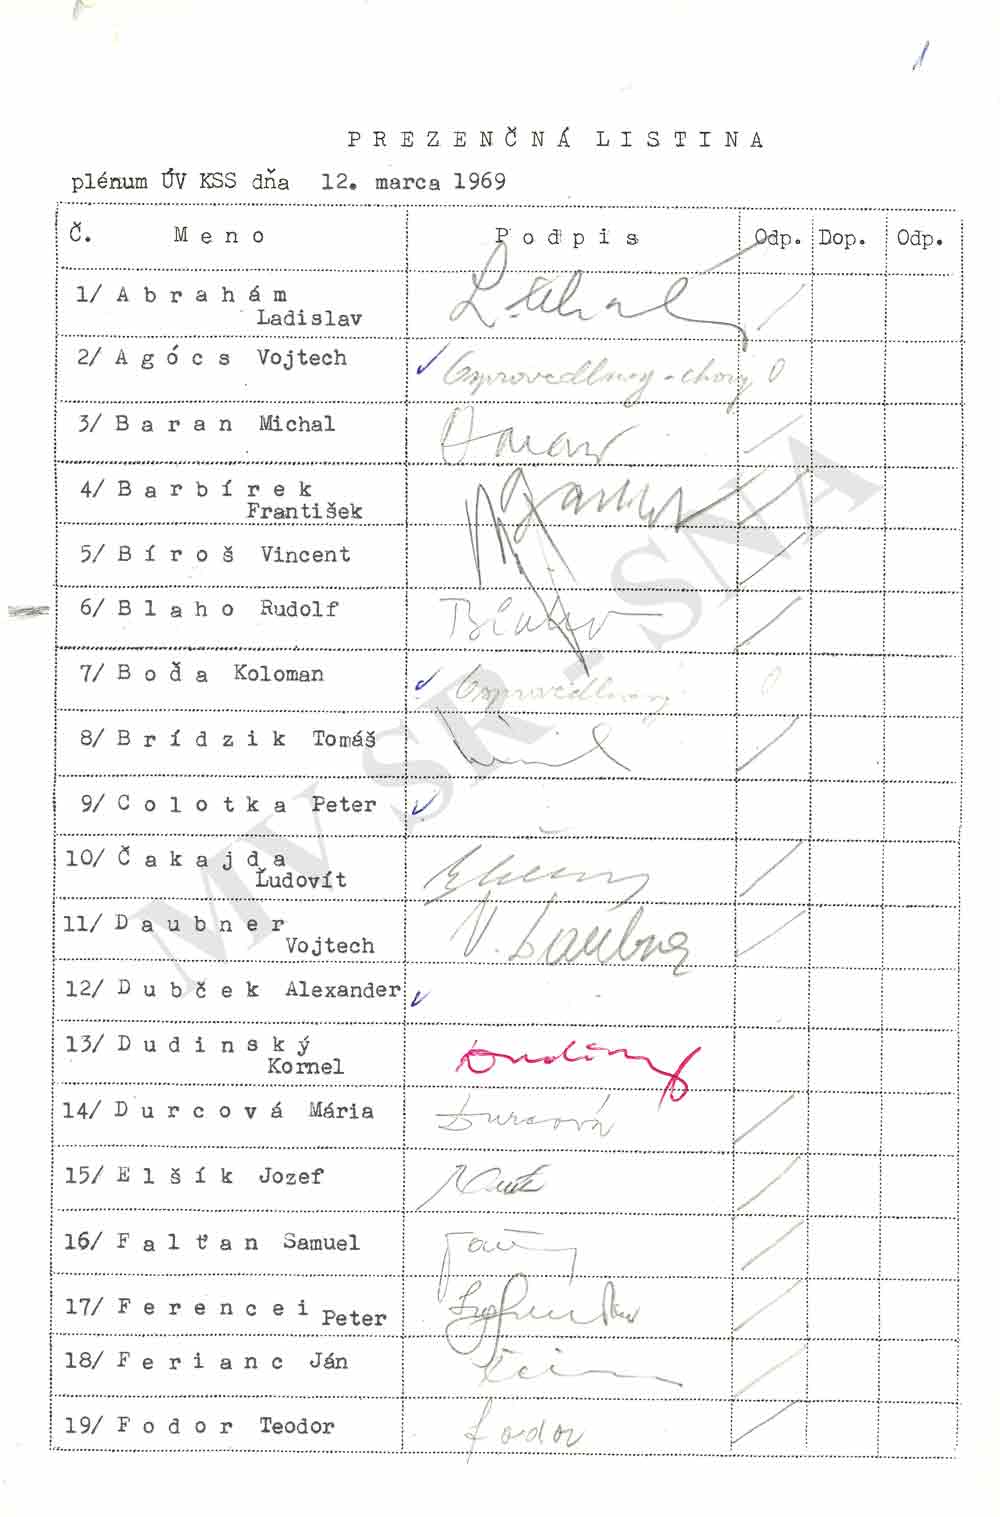 1
PREZENČNÁ LISTINA
plénum ÚV KSS dňa 12. marca 1969
Č. Meno Podpis Odp. Dop. Odp.
1/ Abrahám
Ladislav
2/ Agócs Vojtech Ospravedlnený - chorý 0
3/ Baran Michal Baran
4/ Barbírek
František
5/ Bíroš Vincent
6/ Blaho Rudolf Blaho
7/ Boďa Koloman Ospravedlnený 0
8/ Brídzik Tomáš
9/ Colotka Peter
10/ Čakajda
Ľudovít
11/ Daubner V. Daubner
Vojtech
12/ Dubček Alexander
13/ Dudinský
Kornel
14/ Durcová Mária Durcová
15/ Elšík Jozef
16/ Falťan Samuel
17/ Ferencei Peter
18/ Ferianc Ján
19/ Fodor Teodor Fodor
MV SR - SNA